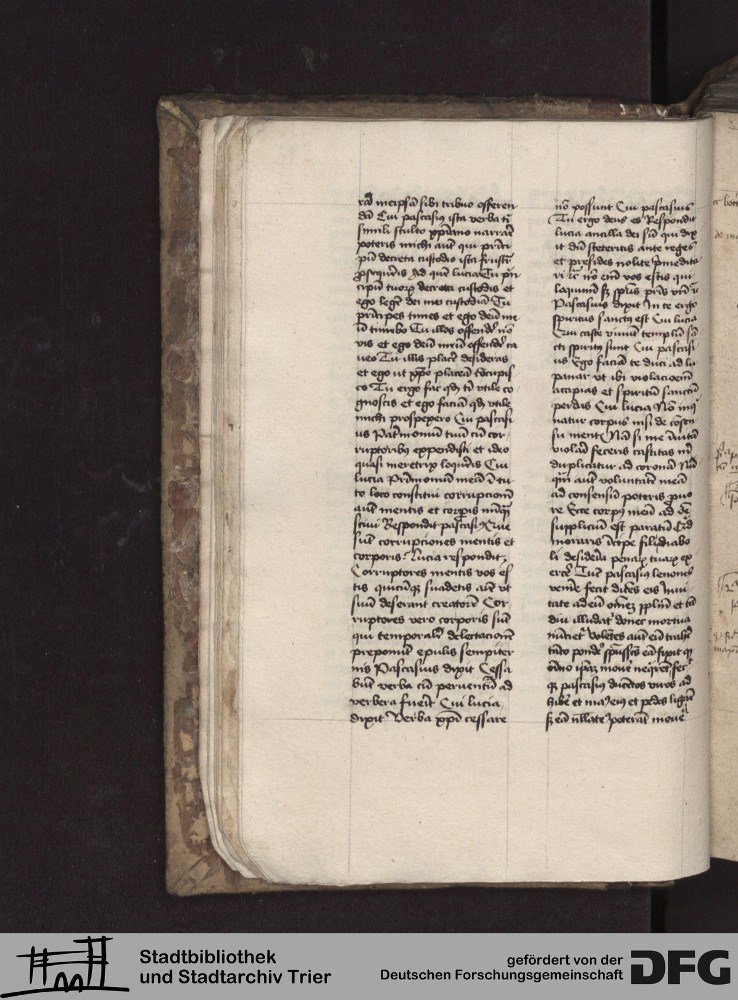 rca meipsā sibi tribuo offeren
dā Cui pascasiꝰ ista verba ti
simili stulto xpiano narrare
poteris michi autē qui prīci
pū decreta custodio ista frustra
ꝓsequeris Ad quē lucia Tu prī
cipū tuoꝝ decreta custodis et
ego legē dei mei custodiā Tu
prīcipes times et ego deū me
ū timebo Tu illos offendere nō
vis et ego deū meū offendere ca
ueo Tu illis placere desideras
et ego ut xpo placeā cōcupis
co Tu ergo fac qd tibi vtile co
gnoscis et ego faciā qd vtile
michi prospexero Cui pascasi
us Patrimoniū tuū cū cor
ruptoribꝰ expendisti et ideo
quasi meretrix loqueris Cui
lucia Patrimoniū meū ī tu
to loco constitui corruptores
autē mentis et corporis nūquā
sciui Respondit pascasiꝰ Qui
sūt corrupciones mentis et
corporis Lucia respondit
Corruptores mentis vos es
tis quicūqꝫ suadetis aīe vt
suū deserant creatorē Cor
ruptores vero corporis sūt
qui temporalē delectacionē
preponūt epulis sempiter
nis Pascasius dixit Cessa
būt verba cū perventū ad
verbera fuerit Cui lucia
dixit Verba xpi cessare
nō possunt Cui pascasius
Tu ergo deus es Respondit
lucia ancilla dei sū qui dix
it dū steteritis ante reges
et presides nolite p̄medita
ri ⁊c nō enī vos estis qui
laquimī sꝫ spūs prīs vrī
Pascasius dixit In te ergo
spiritus sanctꝰ est Cui lucia
Qui caste viuūt templū sā
cti spiritꝰ sunt Cui pascasi
us Ego faciā te duci ad lu
panar vt ibi violacionē
accipias et spiritū sanctū
perdas Cui lucia Nō inqui
natur corpus nisi de cōsen
su mentis Nā si me inuitā
violari feceris castitas michi
duplicatur ad coronā Nū
quā autē voluntatē meā
ad consensū poteris prouo
re Ecce corpꝰ meū ad omne
suppliciū est paratū Quid
moraris Incipe fili diabo
li desideria penaꝝ tuaꝝ ex
ercere Tūc pascasiꝰ lenones
venire fecit dicēs eis Inui
tate ad eā omnē ppl̄m et tā
diu illudatur donec mortua
nūcietur Volētes autē eā trahere
tāto pondere spūssctūs eā fixit qꝫ
oīno ipaꝫ mouere nequirēt fecit
qꝫ pascasiꝰ ducētos viros ad
hiberi et manꝰ eiꝰ et pedes ligari
sꝫ eā nllatenꝰ poterāt mouere
Stadtbibliothek
und Stadtarchiv Trier
gefördert von der
Deutschen Forschungsgemeinschaft
DFG